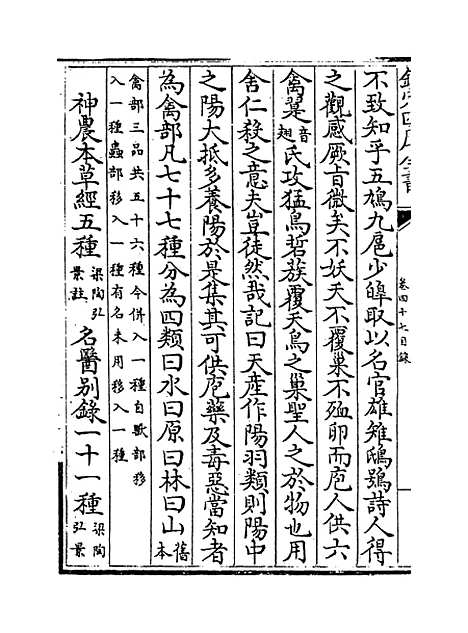 欽定四庫全書
卷四十七目錄
不致知乎五鳩九扈少皥取以名官雄雉鴟鴞詩人得
之觀感厥旨微矣不妖夭不覆巢不殈卵而庖人供六
禽翨音翅氏攻猛鳥硩蔟覆夭鳥之巢聖人之於物也用
舍仁殺之意夫豈徒然哉記曰天産作陽羽類則陽中
之陽大抵多養陽於是集其可供庖藥及毒惡當知者
為禽部凡七十七種分為四類曰水曰原曰林曰山舊本
禽部三品共五十六種今併入一種自獸部移
入一種蟲部移入一種有名未用移入一種
神農本草經五種梁陶弘景註 名醫別錄一十一種梁陶弘景